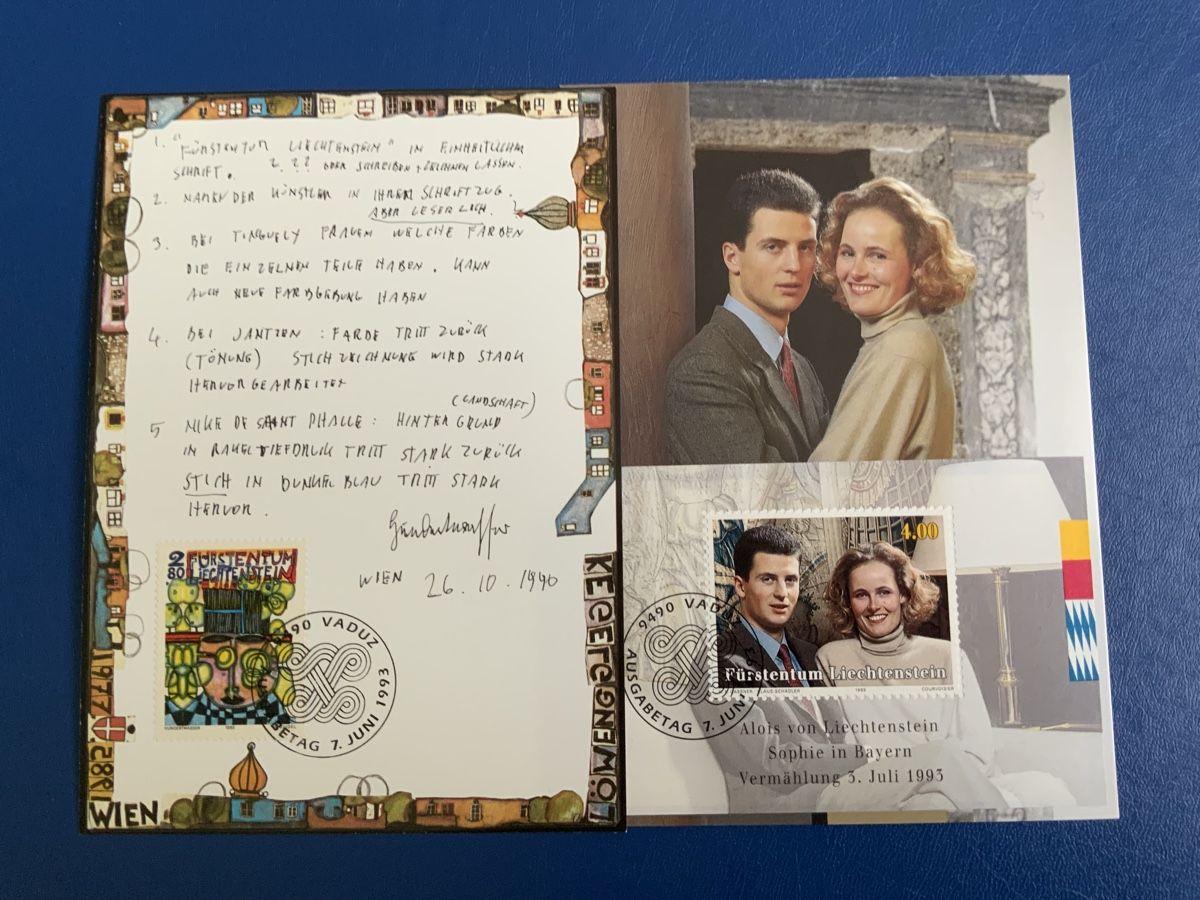 1. "FÜRSTENTUM LIECHTENSTEIN" IN EINHEITLICHER
SCHRIFT. 2. ?? ODER SCHREIBEN + ZEICHNEN LASSEN.
2. NAMEN DER KÜNSTLER IN IHREM SCHRIFTZUG.
ABER LESERLICH.
3. BEI TINGUELY FRAGEN WELCHE FARBEN
DIE EINZELNEN TEILE HABEN. KANN
AUCH NEUE FARBGEBUNG HABEN
4. BEI JANTZEN : FARBE TRITT ZURÜCK
(TÖNUNG) STICHZEICHNUNG WIRD STARK
HERVORGEARBEITET
(LANDSCHAFT)
5 NIKE DE SAINT PHALLE : HINTERGRUND
IN TIEFDRUCK TRITT STARK ZURÜCK
STICH IN DUNKELBLAU TRITT STARK
HERVOR.
Hundertwasser
WIEN 26.10.1990
2
80
FÜRSTENTUM
LIECHTENSTEIN
HUNDERTWASSER 1993
9490 VADUZ
AUSGABETAG 7. JUNI 1993
1977
882
WIEN
4.00
Fürstentum Liechtenstein
KLAUS SCHÄDLER 1993 COURVOISIER
9490 VADUZ
AUSGABETAG 7. JUNI 1993
Alois von Liechtenstein
Sophie in Bayern
Vermählung 3. Juli 1993